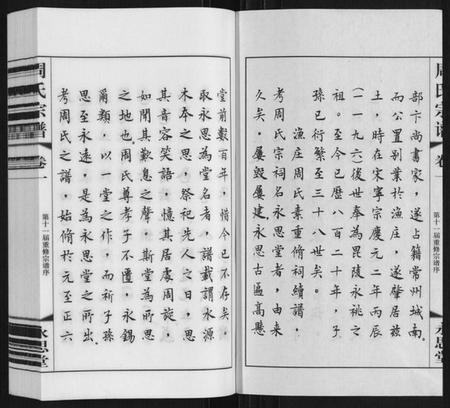 周氏宗谱 卷一
第十一届重修宗谱序
永思堂
部卞尚書家，遂占籍常州城南
而公置别業於漁庄，遂肇居兹
土，時在宋寧宗慶元二年丙辰
（一一九六）後世奉为毘陵永祧之
祖。至今已歷八百二十年，子
孫已衍繁至三十八世矣。
漁庄周氏素重脩祠續譜，
考周氏宗祠名永思堂者，由来
久矣，屢毁屢建永思古匾高懸
堂前數百年，惜今已不存矣，
取永思为堂名者，譜載謂水源
木本之思，祭祀先人之日，思
其音容笑語，憶其居處周旋，
如聞其歎息之聲，斯堂為所思
之地也。周氏尊孝子不匱，永錫
爾類，以一堂之作，而祈子孫
思至永遠，是為永思堂之所出
考周氏之譜，始脩於元至正六
周氏宗譜 卷一
第十一届重修宗谱序
永思堂